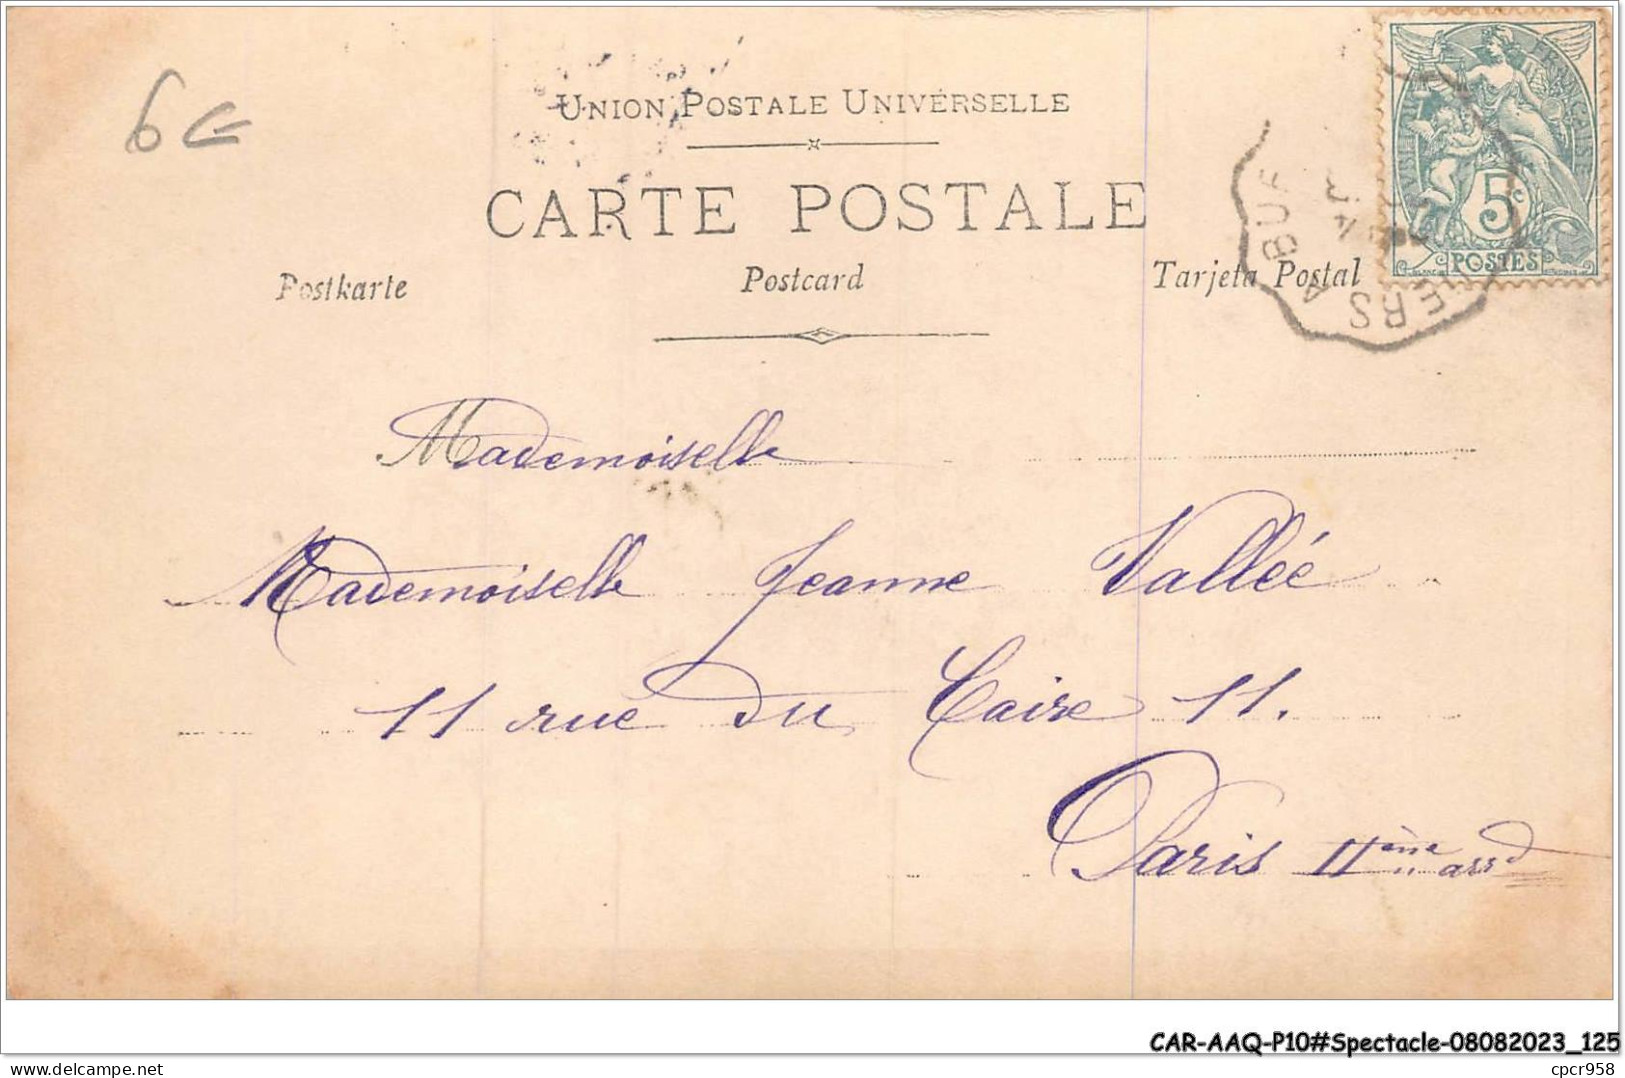 6€
UNION POSTALE UNIVERSELLE
CARTE POSTALE
Postkarte Postcard Tarjeta Postal
5c
POSTES
ERS A BUF
Mademoiselle
Mademoiselle Jeanne Vallée
11 rue du Caire 11.
Paris IIème arrd
CAR-AAQ-P10#Spectacle-08082023_125
delcampe.net
cpcr958